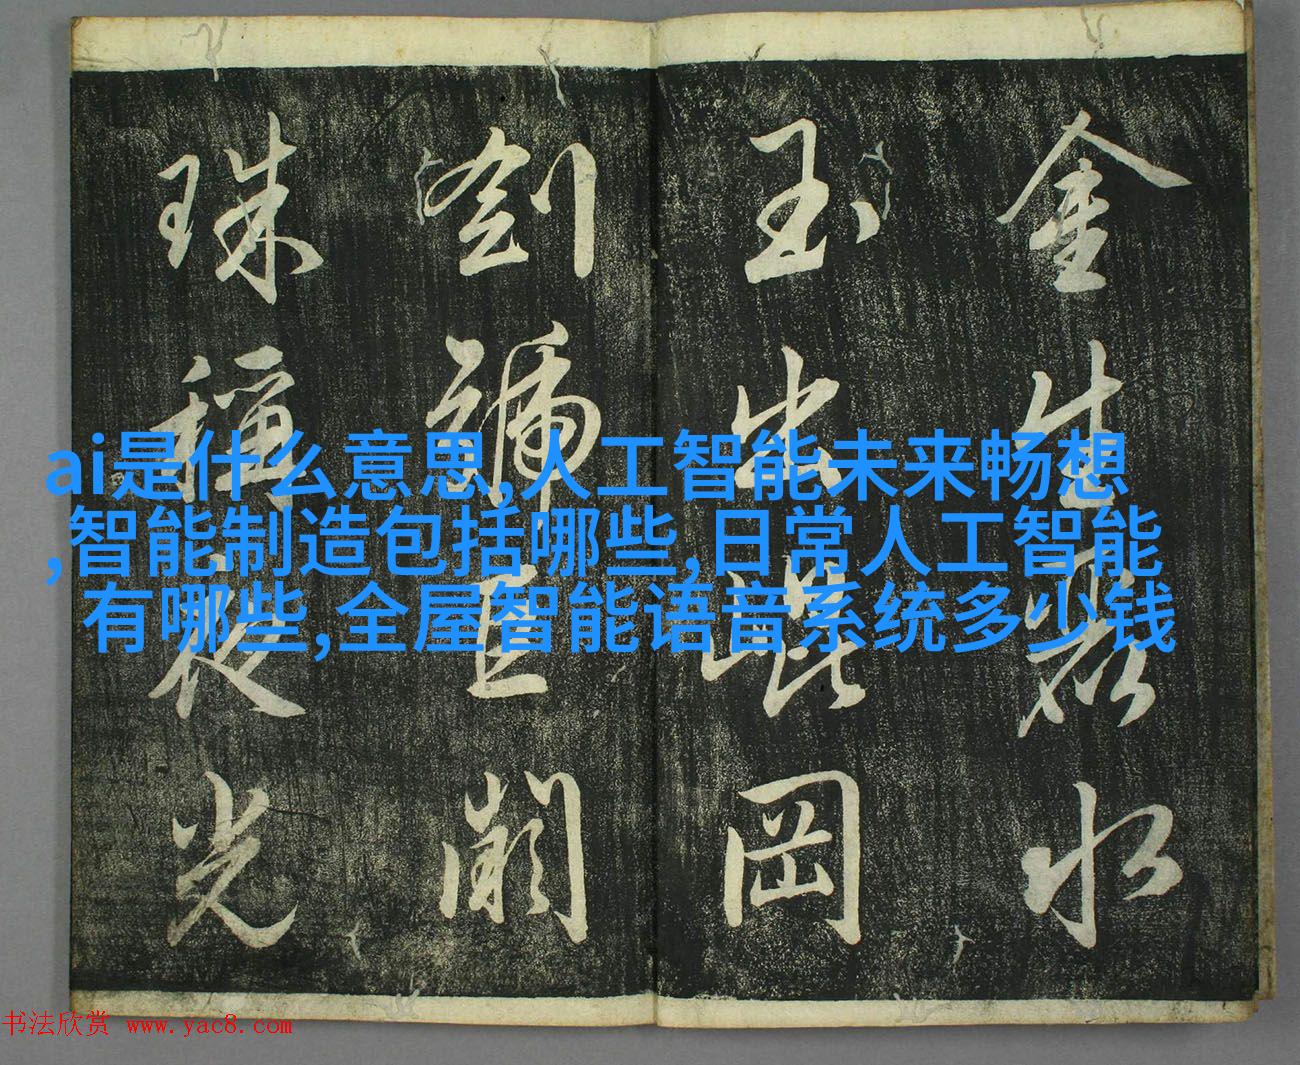 金生麗水
玉出崑岡
劍號巨闕
珠稱夜光
ai是什么意思,人工智能未来畅想
,智能制造包括哪些,日常人工智能
有哪些,全屋智能语音系统多少钱
书法欣赏 www.yac8.com